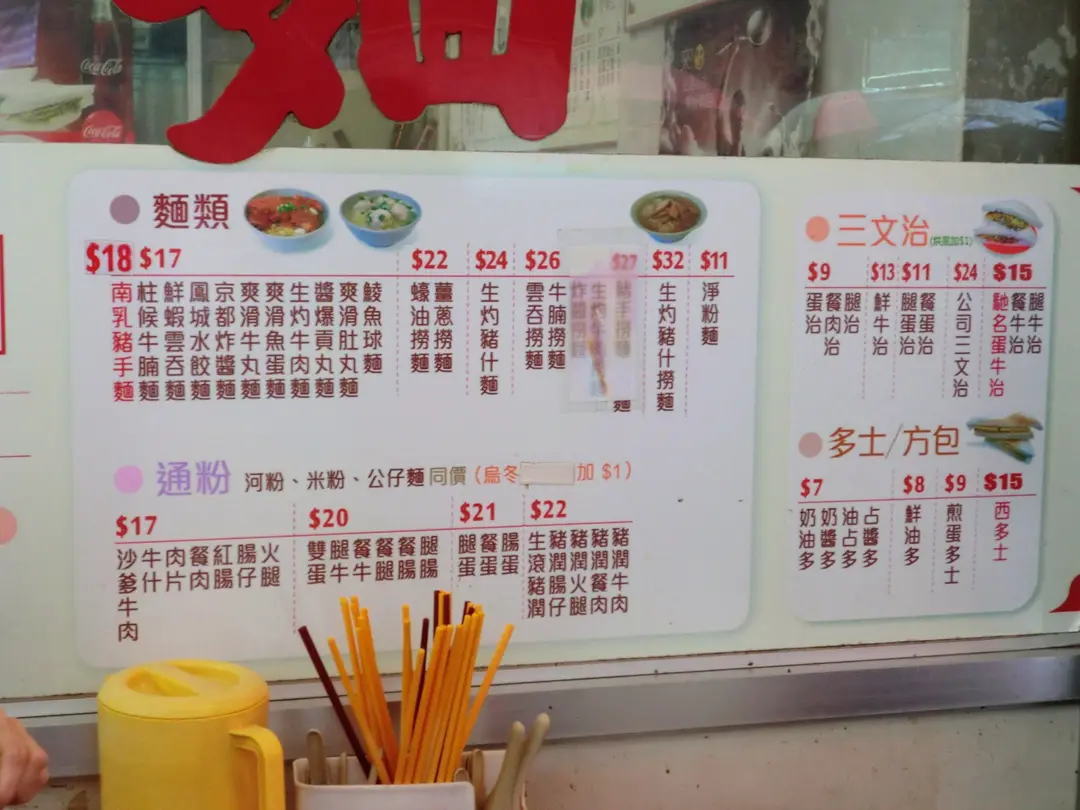 Coca-Cola
Coca-Cola
麵類
$18
南乳豬手麵
$17
柱候牛腩麵
鮮蝦雲吞麵
鳳城水餃麵
京都炸醬麵
爽滑牛丸麵
爽滑魚蛋麵
生灼牛肉麵
醬爆貢丸麵
爽滑肚丸麵
鯪魚球麵
$22
蠔油撈麵
薑蔥撈麵
$24
生灼豬什麵
$26
雲吞撈麵
牛腩撈麵
$27
麵
$32
生灼豬什撈麵
$11
淨粉麵
通粉 河粉、米粉、公仔麵 同價 (烏冬 加 $1)
$17
沙爹牛肉
牛什
肉片
餐肉
紅腸
腸仔
火腿
$20
雙蛋
腿牛
餐牛
餐腿
餐腸
腿腸
$21
腿蛋
餐蛋
腸蛋
$22
生滾豬潤
豬潤腸仔
豬潤火腿
豬潤餐肉
豬潤牛肉
三文治 (烘底加$1)
$9
蛋治
餐肉治
腿治
$13
鮮牛治
$11
腿蛋治
餐蛋治
$24
公司三文治
$15
馳名蛋牛治
餐牛治
腿牛治
多士/方包
$7
奶油多
奶醬多
油占多
占醬多
$8
鮮油多
$9
煎蛋多士
$15
西多士